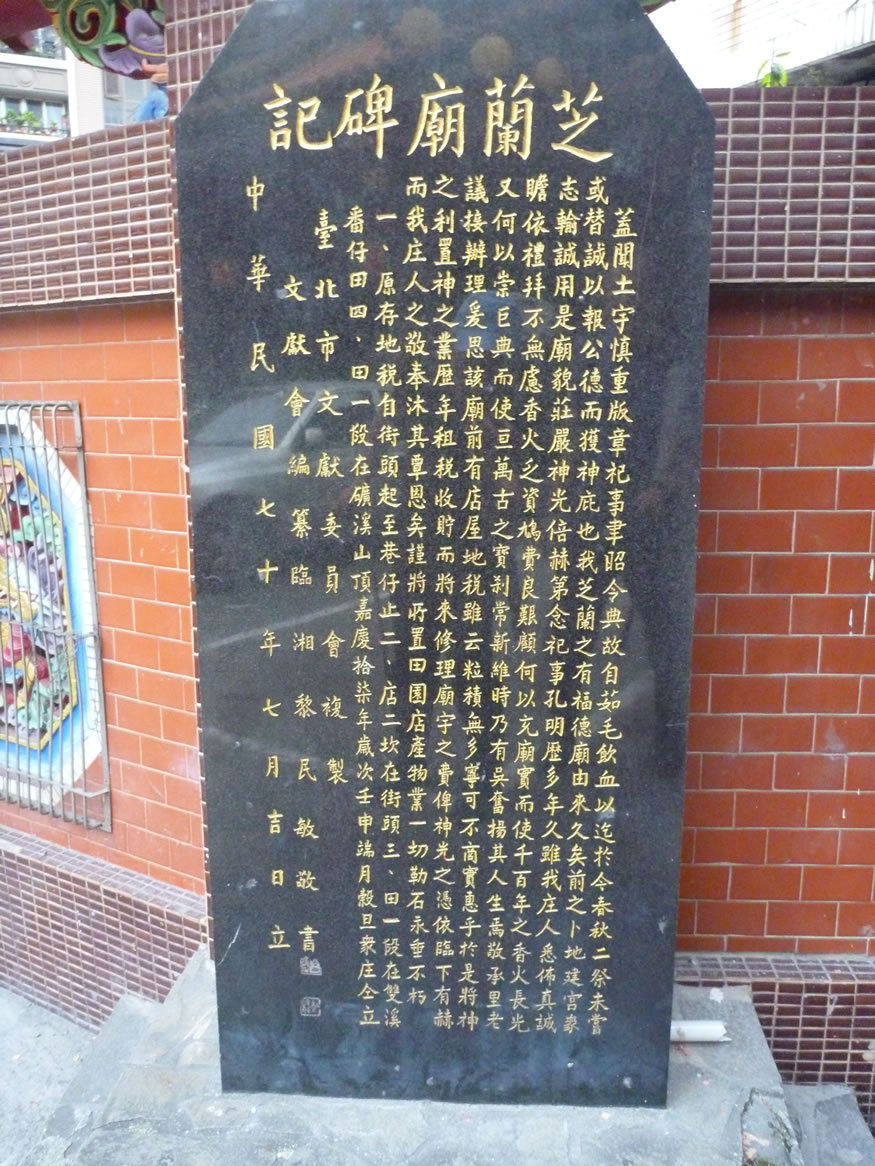 芝蘭廟碑記
蓋聞土宇慎重版章祀事聿昭令典故自茹毛飲血以迄於今春秋二祭未嘗
或替誠以報公德而獲神庇也我芝蘭之有福德廟由來久矣前之卜地建宮衆
志輸誠用是廟貌莊嚴神光倍赫第念祀事孔明歷多年久雖我庄人悉佈真誠
瞻依禮拜不無慮香火乏資鳩費良艱顧何以充廟實而使千百年之香火長光
又何以崇巨典而使亘萬古之寶剎常新維時乃有吳奮揚其人生焉敬承里老
議接辦理爰思該廟前有店屋地稅雖云粒積無多寧可不商實惠乎於是將神
之利置神之業歷年租稅收貯而將來修理廟宇之費俾神光之憑依臨下有赫
而我庄人之敬奉沐其覃恩矣謹將所置田園店產物業一切勒石永垂不朽
一、原存地稅自街頭起至巷仔止二、店二坎在街頭三、田一段在雙溪
番仔田四、田一段在礦溪山頂嘉慶拾柒年歲次壬申端月穀旦衆庄仝立
臺北市文獻委員會複製
文獻會編纂臨湘黎民敏敬書
中華民國七十年七月吉日立